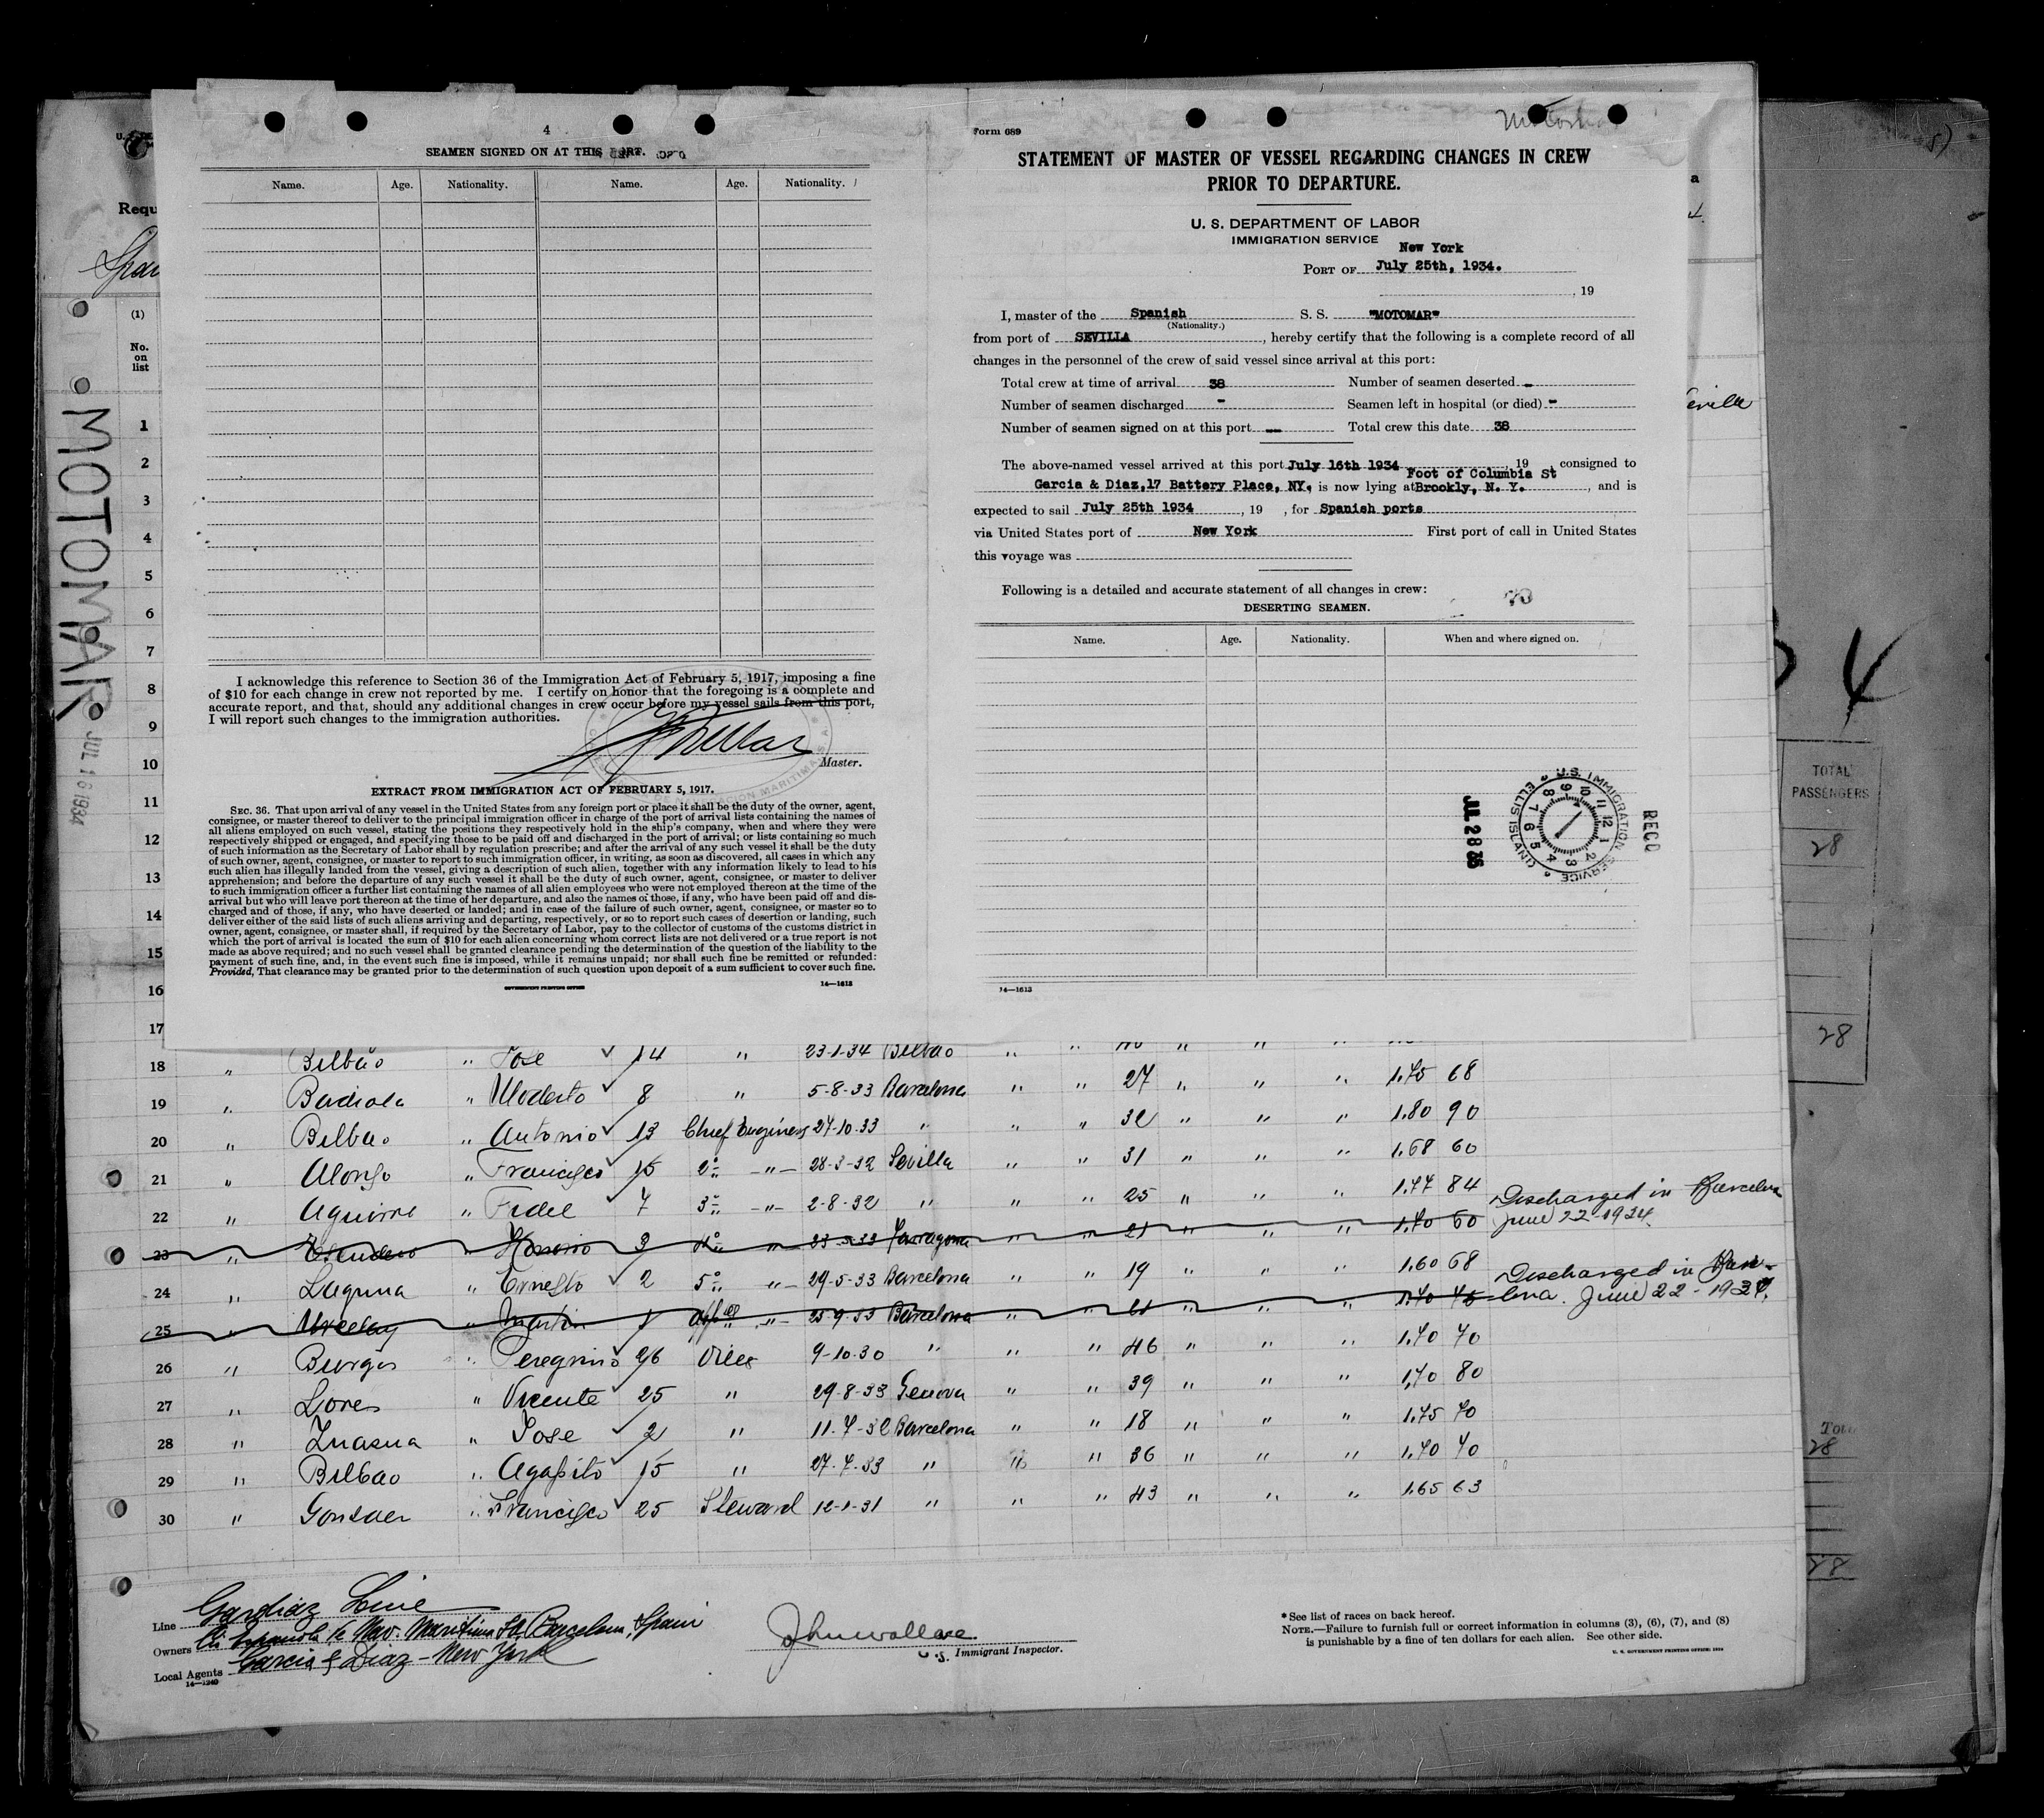 4
SEAMEN SIGNED ON AT THIS PORT.
Name. Age. Nationality. Name. Age. Nationality.
I acknowledge this reference to Section 36 of the Immigration Act of February 5, 1917, imposing a fine
of $10 for each change in crew not reported by me. I certify on honor that the foregoing is a complete and
accurate report, and that, should any additional changes in crew occur before my vessel sails from this port,
I will report such changes to the immigration authorities.
Master.
EXTRACT FROM IMMIGRATION ACT OF FEBRUARY 5, 1917.
SEC. 36. That upon arrival of any vessel in the United States from any foreign port or place it shall be the duty of the owner, agent,
consignee, or master thereof to deliver to the principal immigration officer in charge of the port of arrival lists containing the names of
all aliens employed on such vessel, stating the positions they respectively hold in the ship's company, when and where they were
respectively shipped or engaged, and specifying those to be paid off and discharged in the port of arrival; or lists containing so much
of such information as the Secretary of Labor shall by regulation prescribe; and after the arrival of any such vessel it shall be the duty
of such owner, agent, consignee, or master to report to such immigration officer, in writing, as soon as discovered, all cases in which any
such alien has illegally landed from the vessel, giving a description of such alien, together with any information likely to lead to his
apprehension; and before the departure of any such vessel it shall be the duty of such owner, agent, consignee, or master to deliver
to such immigration officer a further list containing the names of all alien employees who were not employed thereon at the time of the
arrival but who will leave port thereon at the time of her departure, and also the names of those, if any, who have been paid off and dis-
charged and of those, if any, who have deserted or landed; and in case of the failure of such owner, agent, consignee, or master so to
deliver either of the said lists of such aliens arriving and departing, respectively, or so to report such cases of desertion or landing, such
owner, agent, consignee, or master shall, if required by the Secretary of Labor, pay to the collector of customs of the customs district in
which the port of arrival is located the sum of $10 for each alien concerning whom correct lists are not delivered or a true report is not
made as above required; and no such vessel shall be granted clearance pending the determination of the question of the liability to the
payment of such fine, and, in the event such fine is imposed, while it remains unpaid; nor shall such fine be remitted or refunded:
Provided, That clearance may be granted prior to the determination of such question upon deposit of a sum sufficient to cover such fine.
GOVERNMENT PRINTING OFFICE 14—1613
Form 689
STATEMENT OF MASTER OF VESSEL REGARDING CHANGES IN CREW
PRIOR TO DEPARTURE.
U. S. DEPARTMENT OF LABOR
IMMIGRATION SERVICE
New York
PORT OF July 25th, 1934.
, 19
I, master of the Spanish S. S. "MOTOMAR"
(Nationality.)
from port of SEVILLA, hereby certify that the following is a complete record of all
changes in the personnel of the crew of said vessel since arrival at this port:
Total crew at time of arrival 38 Number of seamen deserted -
Number of seamen discharged - Seamen left in hospital (or died) -
Number of seamen signed on at this port - Total crew this date 38
The above-named vessel arrived at this port July 16th 1934, 19 , consigned to
Foot of Columbia St
Garcia & Diaz, 17 Battery Place, NY. is now lying at Brookly, N. Y. , and is
expected to sail July 25th 1934 , 19 , for Spanish ports
via United States port of New York First port of call in United States
this voyage was
Following is a detailed and accurate statement of all changes in crew:
DESERTING SEAMEN.
Name. Age. Nationality. When and where signed on.
14—1613
JUL 28 35
U.S. IMMIGRATION SERVICE
ELLIS ISLAND
REC'D
MOTOMAR
JUL 16 1934
Requ
(1)
No.
on
list
1
2
3
4
5
6
7
8
9
10
11
12
13
14
15
16
17
18 " Bilbao " Jose 14 " 23-1-34 Bilbao " " " " "
19 " Badiola " Modesto 8 " 5-8-33 Barcelona " " 27 " " " 1.75 68
20 " Bilbao " Antonio 13 Chief Engineer 27-10-33 " " " 32 " " " 1.80 90
21 " Alonso " Francisco 15 2º -"- 28-3-32 Sevilla " " 31 " " " 1.68 60
22 " Aguirre " Fidel 7 3º -"- 2-8-32 " " " 25 " " " 1.77 84
Discharged in Barcelona
June 22-1934.
23 " " Honorio 3 4º " Tarragona " " 21 " " " 1.70 60
24 " Laguna " Ernesto 2 5º " 29-5-33 Barcelona " " 19 " " " 1.60 68
Discharged in Barce-
lona. June 22-1934.
25 " " Martin 1 " 25-9-33 Barcelona " " 21 " " "
26 " Burgos " Peregrino 26 Oiler 9-10-30 " " " 46 " " " 1.70 70
27 " Lores " Vicente 25 " 29-8-33 Genova " " 39 " " " 1.70 80
28 " " Jose 2 " 11-7-32 Barcelona " " 18 " " " 1.75 70
29 " Bilbao " Agapito 15 " 27-7-33 " " " 36 " " " 1.70 70
30 " " Francisco 25 Steward 12-1-31 " " " 43 " " " 1.65 63
Line Gardiaz Line
Owners Cia Española de Nav. Maritima SA, Barcelona, Spain
Local Agents Garcia & Diaz - New York
14—1240
John Wallace
U. S. Immigrant Inspector.
* See list of races on back hereof.
NOTE.—Failure to furnish full or correct information in columns (3), (6), (7), and (8)
is punishable by a fine of ten dollars for each alien. See other side.
U. S. GOVERNMENT PRINTING OFFICE
TOTAL
PASSENGERS
28
28
28